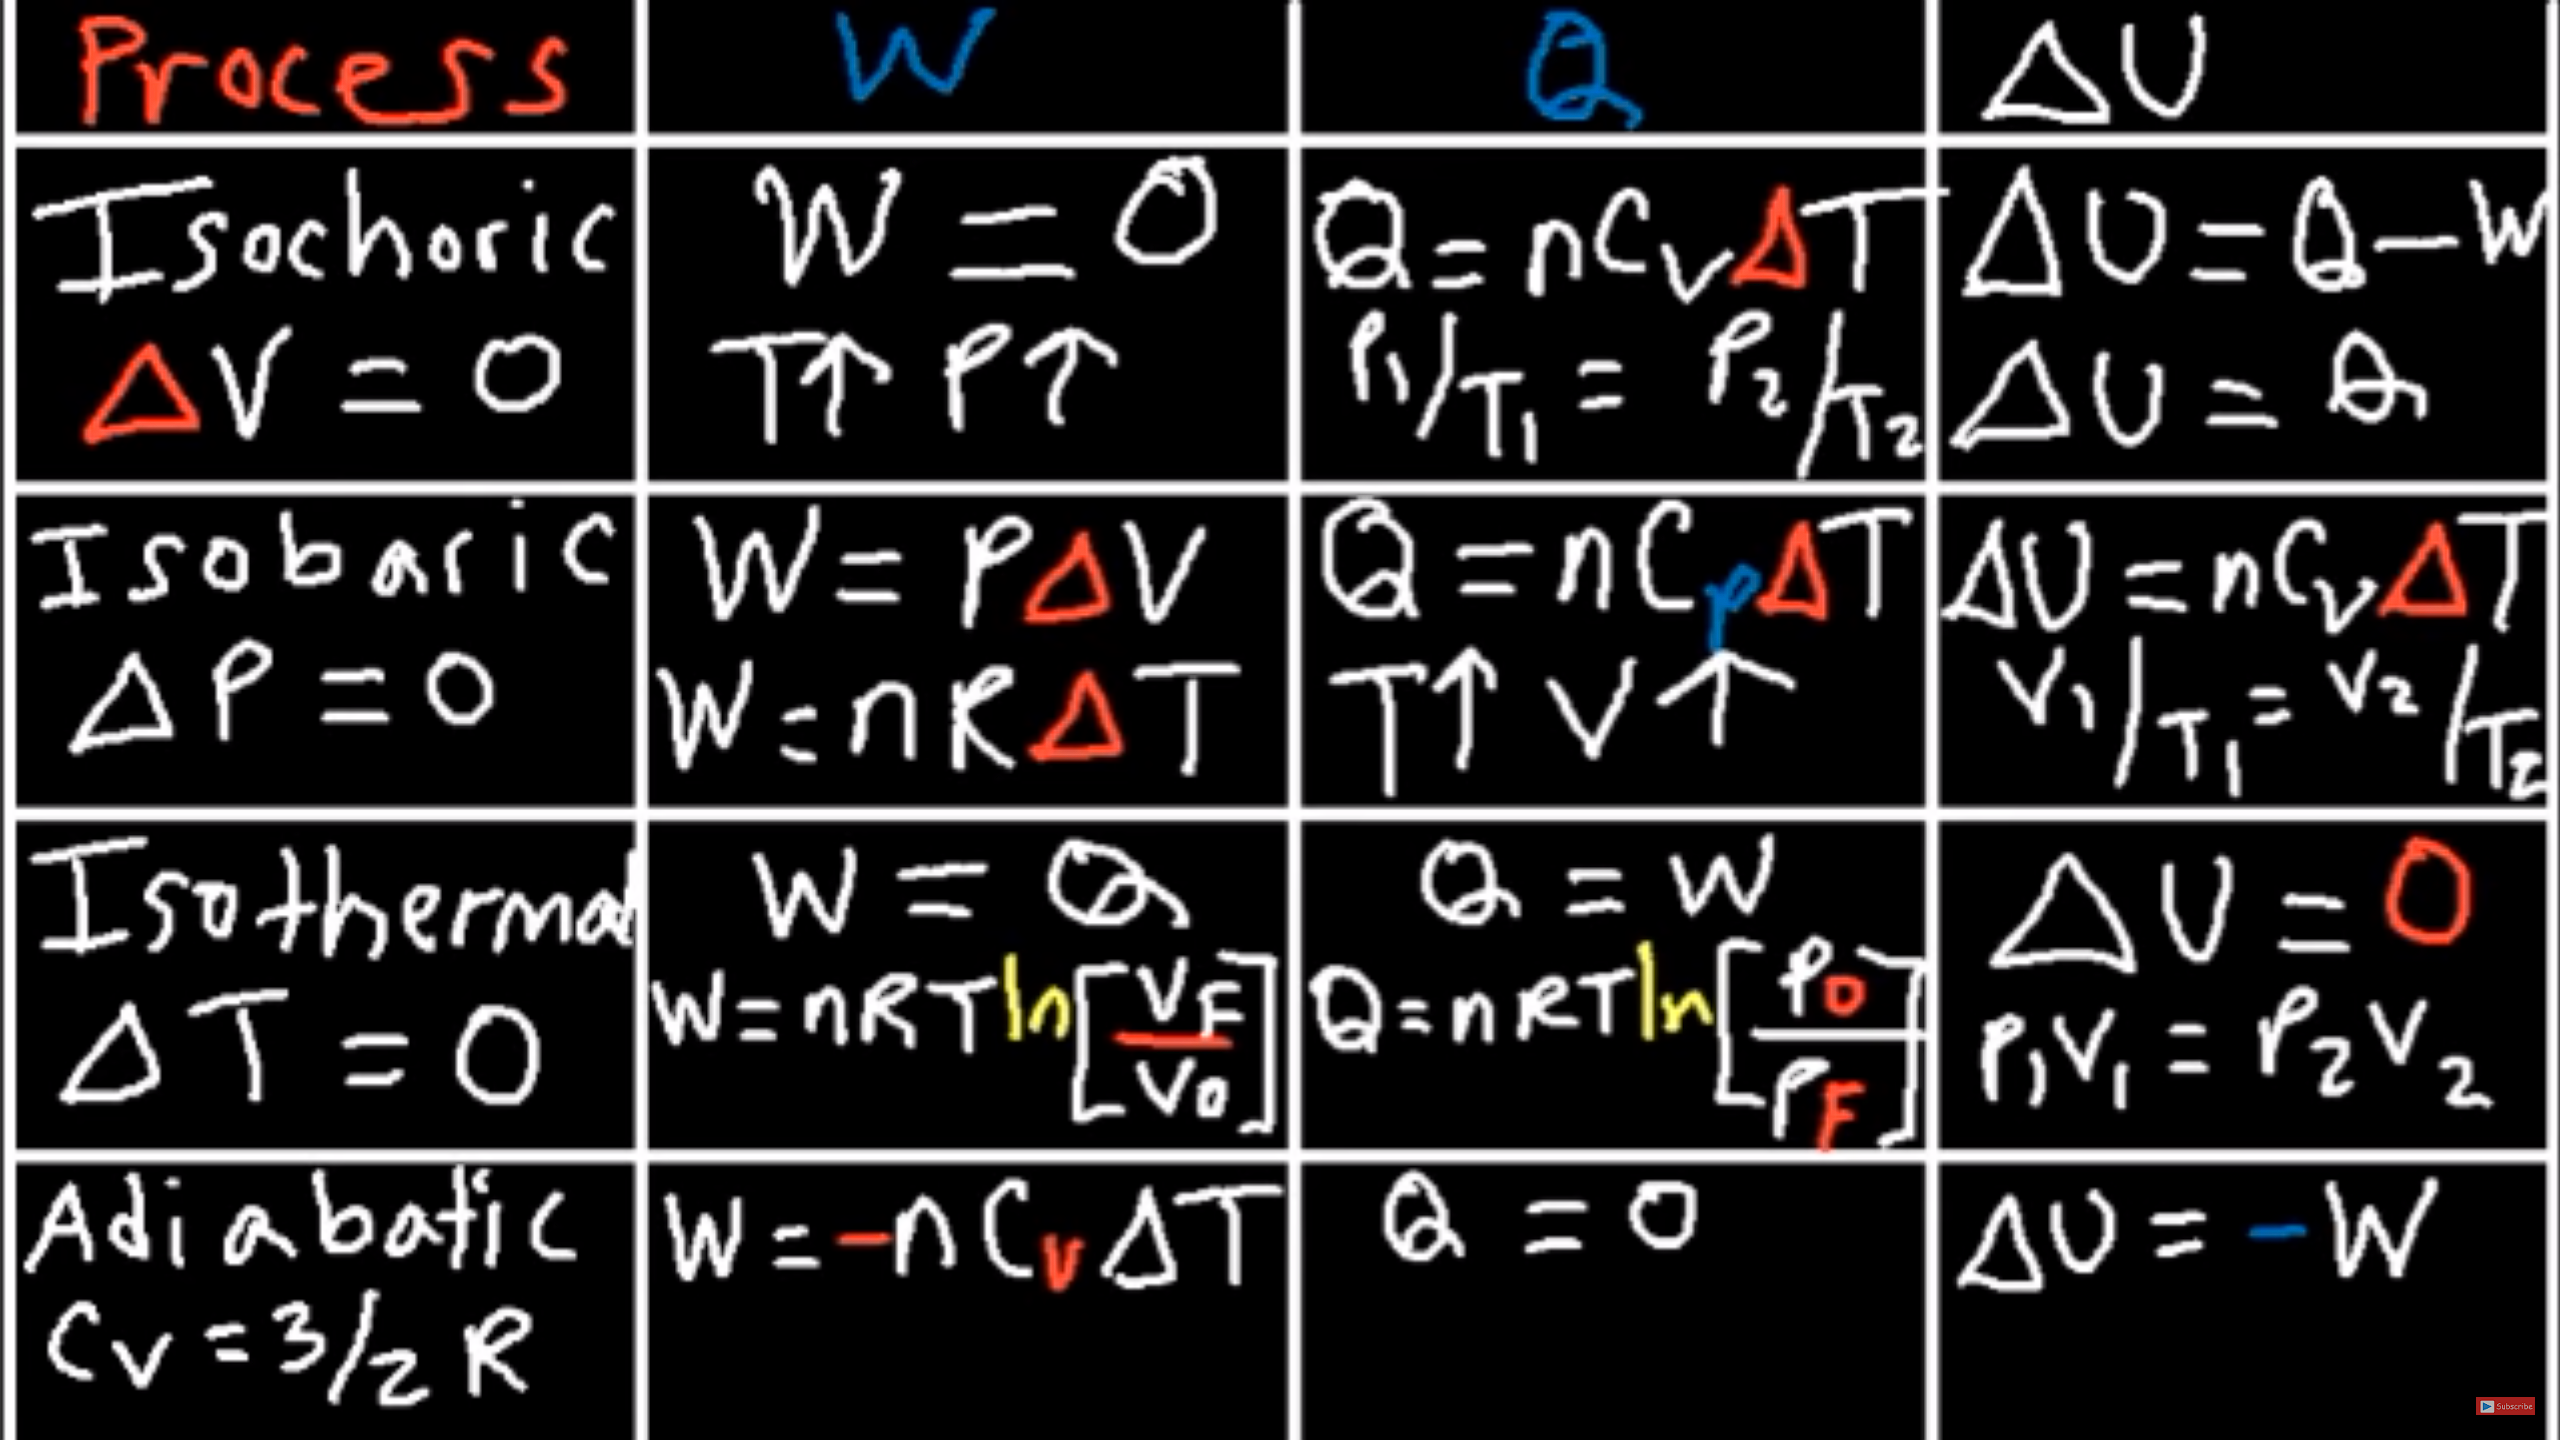 Process W Q ΔU
Isochoric
ΔV = 0
W = 0
T↑ P↑
Q = nCvΔT
P1/T1 = P2/T2
ΔU = Q - W
ΔU = Q
Isobaric
ΔP = 0
W = PΔV
W = nRΔT
Q = nCpΔT
T↑ V↑
ΔU = nCvΔT
V1/T1 = V2/T2
Isothermal
ΔT = 0
W = Q
W = nRT ln [VF/V0]
Q = W
Q = nRT ln [P0/PF]
ΔU = 0
P1V1 = P2V2
Adiabatic
Cv = 3/2 R
W = -nCvΔT
Q = 0
ΔU = -W
Subscribe